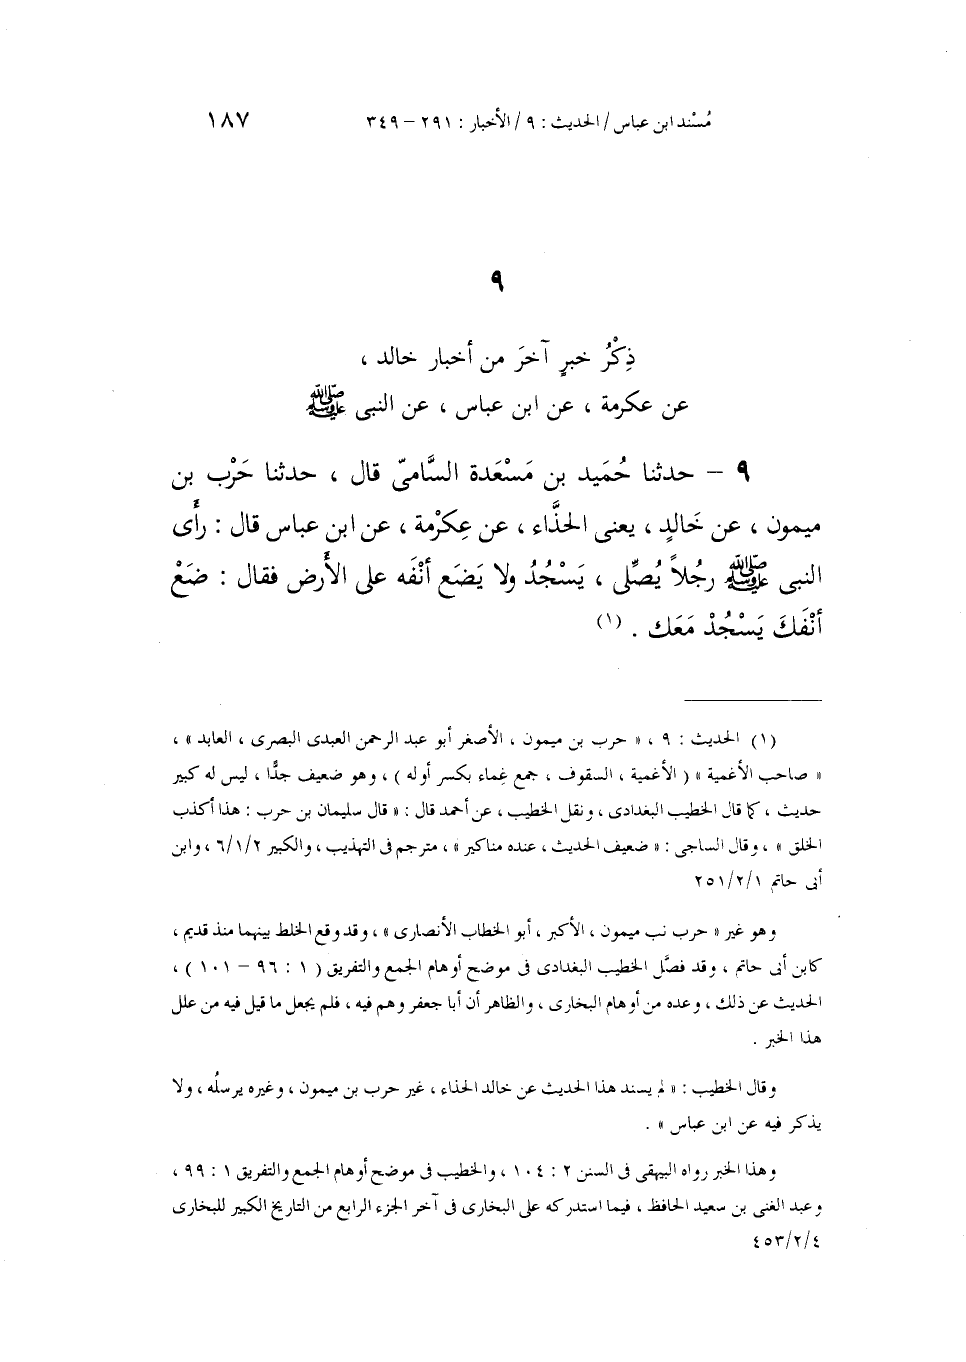 مُسْند ابن عباس / الحديث : ٩ / الأخبار : ٢٩١ – ٣٤٩ ١٨٧
٩
ذِكْرُ خبرٍ آخرَ من أخبار خالد ،
عن عكرمة ، عن ابن عباس ، عن النبى ﷺ
٩ – حدثنا حُمَيد بن مَسْعَدة السَّامىّ قال ، حدثنا حَرْب بن
ميمون ، عن خَالدٍ ، يعنى الحذَّاء ، عن عِكرْمة ، عن ابن عباس قال : رأَى
النبى ﷺ رجُلاً يُصلِّى ، يَسْجُدُ ولا يَضَع أنْفَه على الأَرض فقال : ضَعْ
أنْفَكَ يَسْجُدْ مَعَك . (١)
(١) الحديث : ٩ ، « حرب بن ميمون ، الأصغر أبو عبد الرحمن العبدى البصرى ، العابد » ،
« صاحب الأغمية » ( الأغمية ، السقوف ، جمع غِماء بكسر أوله ) ، وهو ضعيف جدًّا ، ليس له كبير
حديث ، كما قال الخطيب البغدادى ، ونقل الخطيب ، عن أحمد قال : « قال سليمان بن حرب : هذا أكذب
الخلق » ، وقال الساجى : « ضعيف الحديث ، عنده مناكير » ، مترجم فى التهذيب ، والكبير ٦/١/٢ ، وابن
أبى حاتم ٢٥١/٢/١
وهو غير « حرب نب ميمون ، الأكبر ، أبو الخطاب الأنصارى » ، وقد وقع الخلط بينهما منذ قديم ،
كابن أبى حاتم ، وقد فصَّل الخطيب البغدادى فى موضح أوهام الجمع والتفريق ( ١ : ٩٦ – ١٠١ ) ،
الحديث عن ذلك ، وعده من أوهام البخارى ، والظاهر أن أبا جعفر وهم فيه ، فلم يجعل ما قيل فيه من علل
هذا الخبر .
وقال الخطيب : « لم يسند هذا الحديث عن خالد الحذاء ، غير حرب بن ميمون ، وغيره يرسلُه ، ولا
يذكر فيه عن ابن عباس » .
وهذا الخبر رواه البيهقى فى السنن ٢ : ١٠٤ ، والخطيب فى موضح أوهام الجمع والتفريق ١ : ٩٩ ،
وعبد الغنى بن سعيد الحافظ ، فيما استدركه على البخارى فى آخر الجزء الرابع من التاريخ الكبير للبخارى
٤٥٣/٢/٤